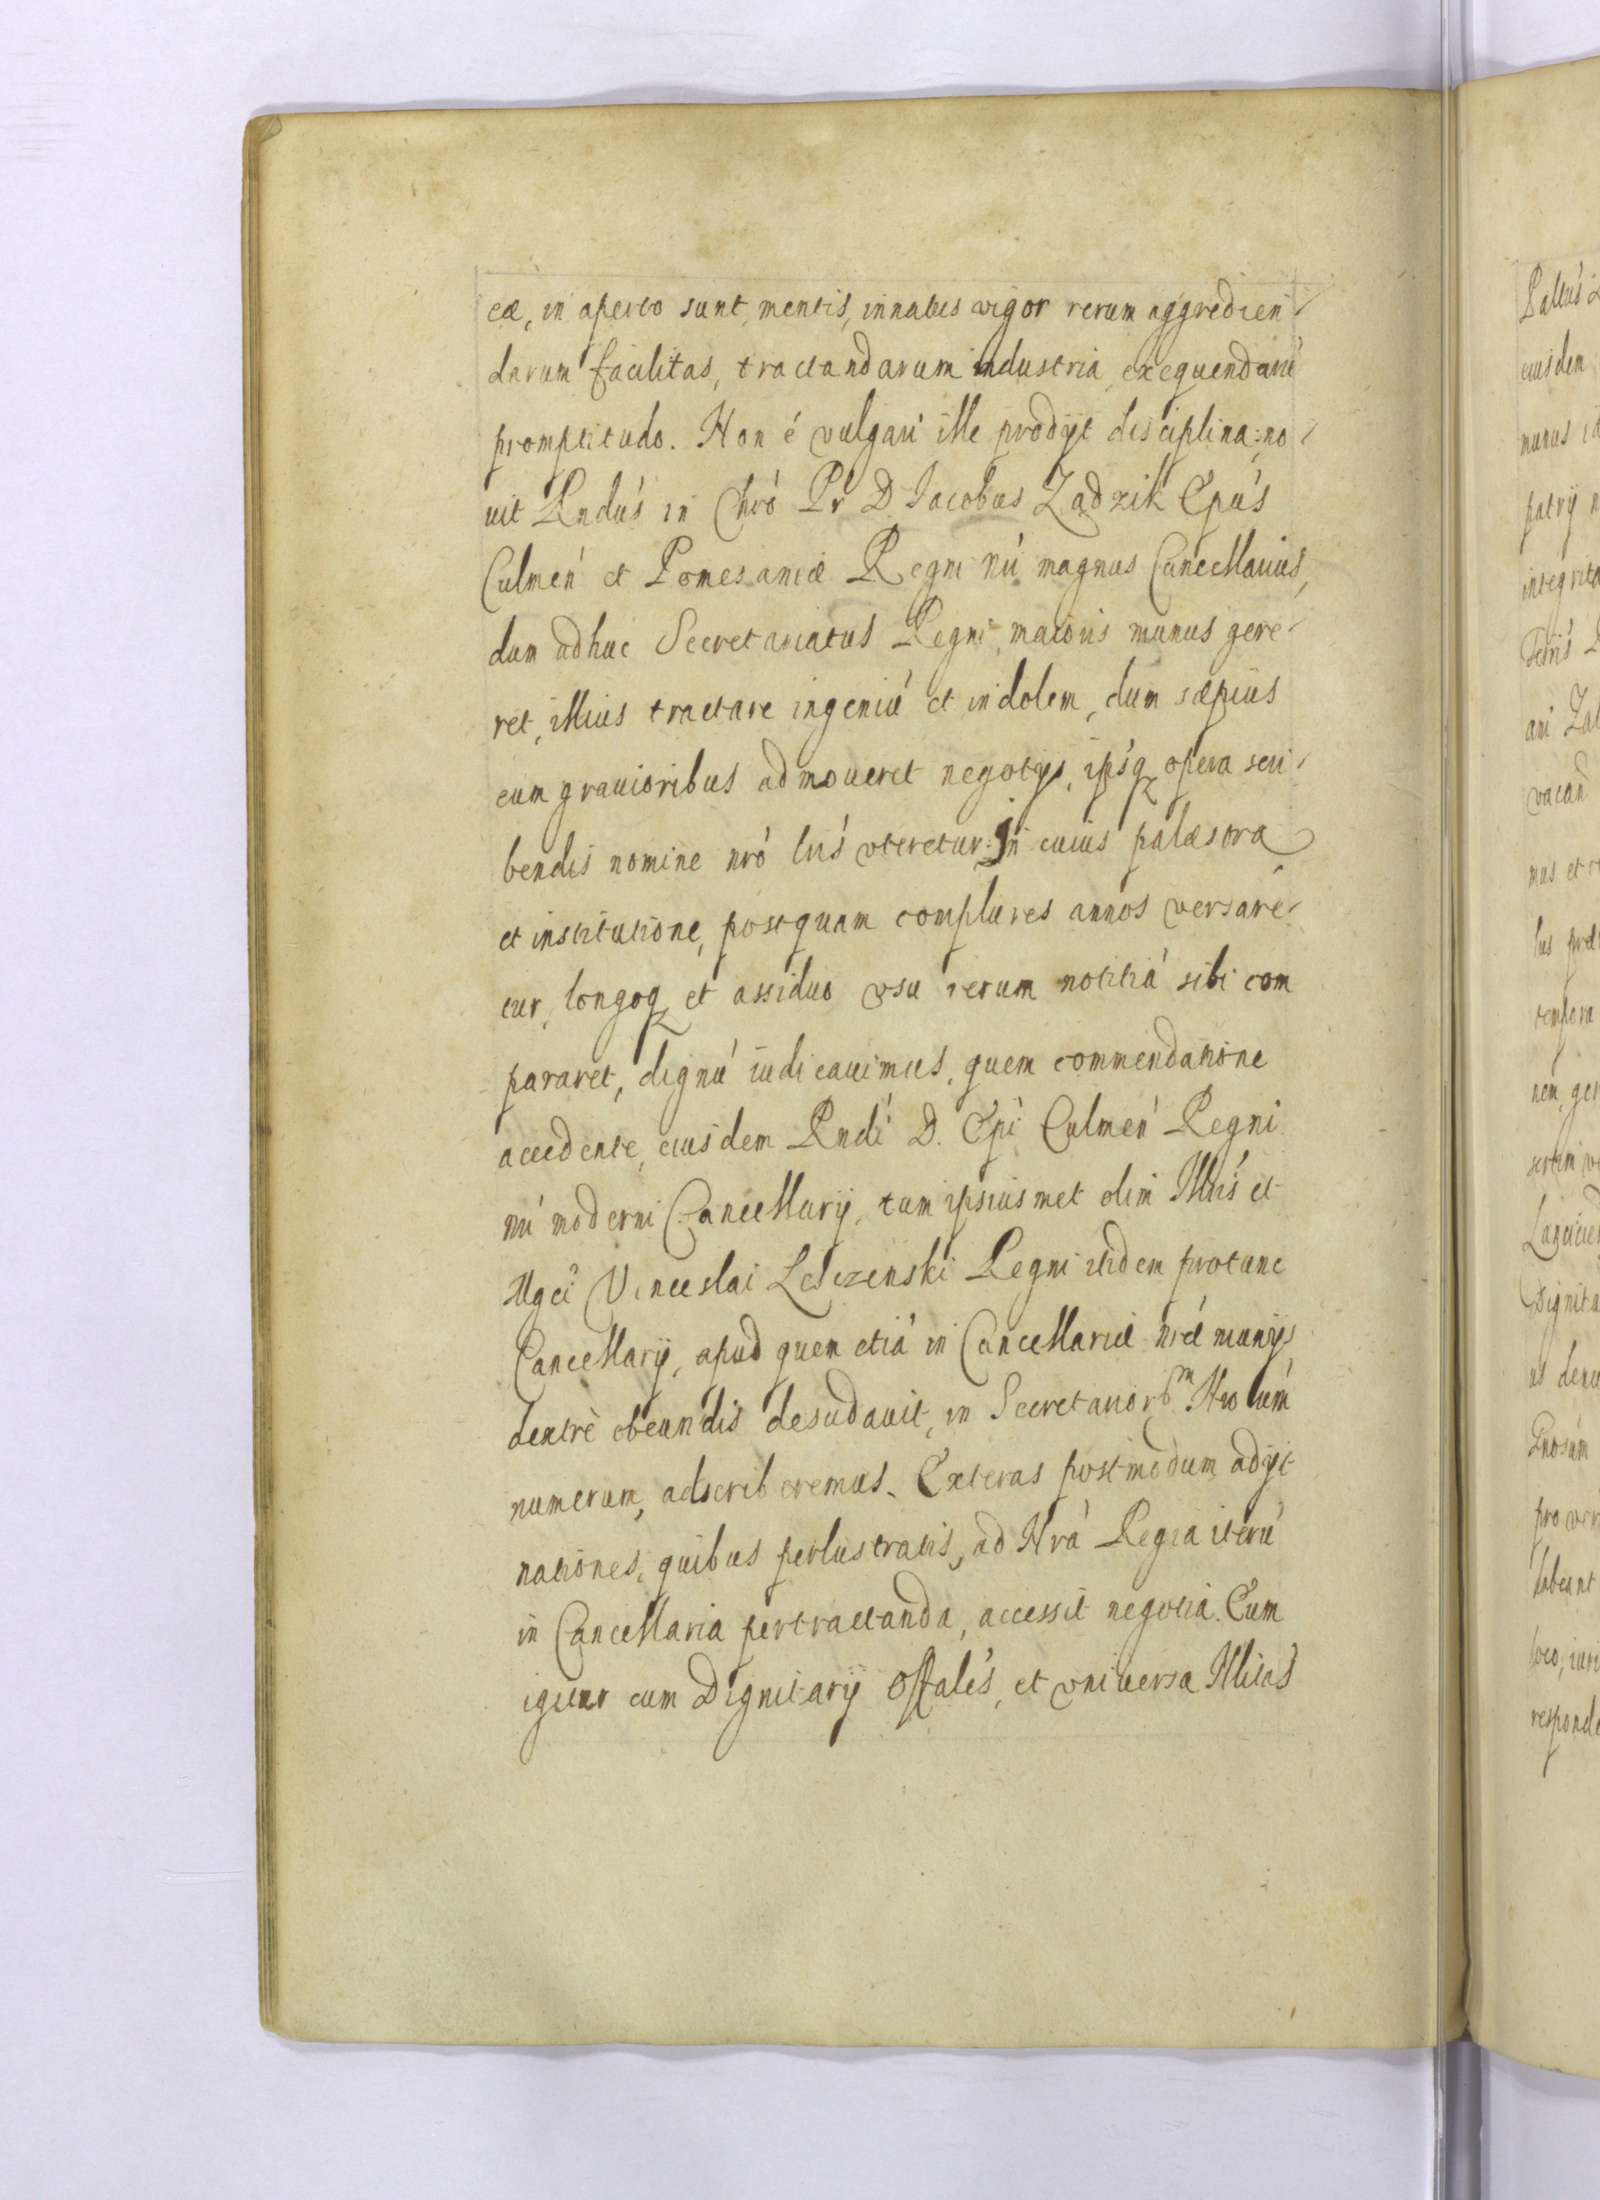 eæ, in aperto sunt, mentis, innatus vigor rerum aggredien-
darum facilitas, tractandarum industria, exequendarú
promptitudo. Non é vulgari ille prodijt disciplina, no-
uit Rndús in Chró Pr D Iacobus Zadzik Epús
Culmeń et Pomesaniæ Regni nú magnus Cancellarius,
dum adhuc Secretariatus Regni, maioris munus gere-
ret, illius tractare ingeniú et indolem, dum sæpius
eum grauioribus admoueret negotijs, ipsq opera scri-
bendis nomine nró lrís vteretur. In cuius palæstra
et institutione, postquam complures annos versaré-
tur, longoq et assiduo vsu rerum notitiá sibi com
pararet, dignú iudicauimus, quem commendatione
accedente, eiusdem Rndí D. Epí Culmeń Regni
nú moderni Cancellarij, tum ipsiusmet olim Illrís et
Mgcí Venceslai Lesczenski Regni itidem protunc
Cancellarij, apud quem etiá in Cancellariæ nræ munijs
dextrè obeundis desudauit, in Secretarior Nrorúm
numerum, adscriberemus. Exteras postmodum adijt
nationes, quibus perlustratis, ad Nrá Regia iterú
in Cancellaria pertractanda, accessit negotia. Cum
igitur cum Dignitarij Offales, et vniuersa Militás
Palús
eiusdem
munus
patrij
integrita
ani Zal
vacan
mus et
tempora
nem, ger
Dignita
pro ver
habeant
loco, iuri
responde